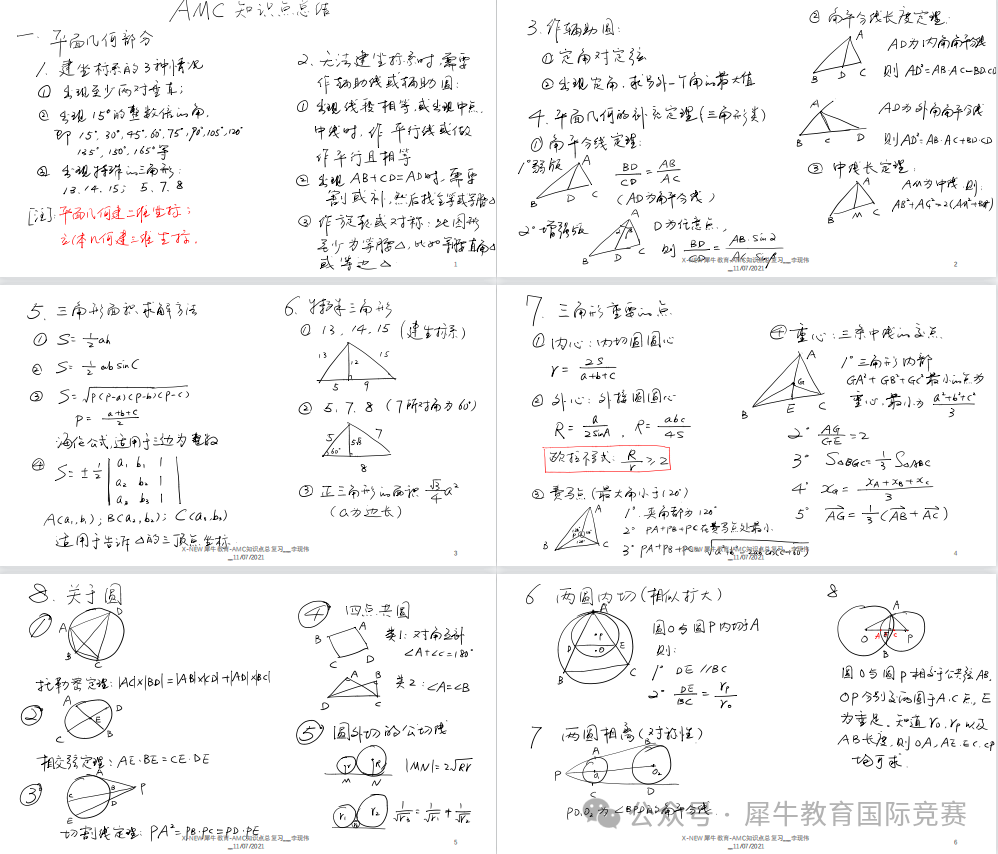 AMC 知识点总结
一. 平面几何部分
1. 建坐标系的3种情况
① 出现至少两对垂直;
② 出现15°的整数倍的角.
即 15°, 30°, 45°, 60°, 75°, 90°, 105°, 120°
135°, 150°, 165°等
③ 出现特殊的三角形:
13. 14. 15; 5. 7. 8
[注]: 平面几何建二维坐标;
立体几何建三维坐标.
2. 无法建坐标系时, 需要
作辅助线或辅助圆:
① 出现线段相等, 或出现中点.
中线时, 作平行线或做
作平行且相等
② 出现AB+CD=AD时, 需要
割或补, 然后找全等或等腰△
③ 作旋转或对称: 此图形
至少为等腰△, 比如等腰直角△
或等边△
1
3. 作辅助圆:
① 定角对定弦
② 出现定角, 求另外一个角的最大值
4. 平面几何的补充定理(三角形类)
① 角平分线定理:
1° 弱版
A
B D C
BD/CD = AB/AC
(AD为角平分线)
2° 增强版
A
B D C
D为任意点,
则 BD/CD = AB·sin2/AC·sin1
② 角平分线长度定理:
A
B D C
AD为内角角平分线
则 AD²=AB·AC-BD·CD
A
B C D
AD为外角角平分线
则AD²=-AB·AC+BD·CD
③ 中线长定理:
A
B M C
AM为中线. 则:
X-NEW 犀牛教育-AMC知识点总复习__李现伟
_11/07/2021
2
5. 三角形面积求解方法
① S=½ah
② S=½absinC
③ S=√p(p-a)(p-b)(p-c)
p=(a+b+c)/2
海伦公式, 适用于三边为整数
④ S=±½
a₁ b₁ 1
a₂ b₂ 1
a₃ b₃ 1
A(a₁,b₁); B(a₂,b₂); C(a₃,b₃)
适用于告诉△的三顶点坐标
6. 特殊三角形
① 13. 14. 15 (建坐标系)
13 12 15
5 9
② 5. 7. 8 (7所对角为60°)
5 7
60°
8
③ 正三角形的面积 √3/4 a²
(a为边长)
X-NEW 犀牛教育-AMC知识点总复习__李现伟
_11/07/2021
3
7. 三角形重要的点
① 内心: 内切圆圆心
r = 2S/(a+b+c)
② 外心: 外接圆圆心
R = a/2sinA, R = abc/4S
欧拉不等式: R/r ≥ 2
③ 费马点 (最大角小于120°)
A
B C
1° 夹角都为120°
2° PA+PB+PC在费马点处最小
3° PA+PB+PC=
④ 重心: 三条中线的交点
A
G
B E C
1° 三角形内部
GA²+GB²+GC²最小的点为
重心, 最小为 (a²+b²+c²)/3
2° AG/GE=2
3° S△BGC=⅓S△ABC
4° x_G = (x_A+x_B+x_C)/3
5° AG=⅓(AB+AC)
X-NEW 犀牛教育-AMC知识点总复习__李现伟
_11/07/2021
4
8. 关于圆
①
A D
B C
托勒密定理: |AC|×|BD|=|AB|×|CD|+|AD|×|BC|
②
A D
E
C B
相交弦定理: AE·BE=CE·DE
③
A
B P
C D
E
切割线定理: PA²=PB·PC=PD·PE
④ 四点共圆
A
B
C D
类1: 对角互补
∠A+∠C=180°
A B
D C
类2: ∠A=∠B
⑤ 圆外切的公切线
r R
M N
|MN|=2√Rr
r₁ r₂
1/√r₃ = 1/√r₁ + 1/√r₂
X-NEW 犀牛教育-AMC知识点总复习__李现伟
_11/07/2021
5
6 两圆内切(相似扩大)
A
P
D O E
B C
圆O与圆P内切于A
则:
1° DE//BC
2° DE/BC = r_P/r_O
7 两圆相离(对称性)
P A B O₂
C D
PO₁O₂为∠BPD的角平分线
8
A
O A E C P
B
圆O与圆P相交于公共弦AB.
OP分别交两圆于A.C点, E
为垂足. 知道r_O, r_P以及
AB长度, 则OA, AE, EC, CP
均可求.
公众号 · 犀牛教育国际竞赛
X-NEW 犀牛教育-AMC知识点总复习__李现伟
_11/07/2021
6